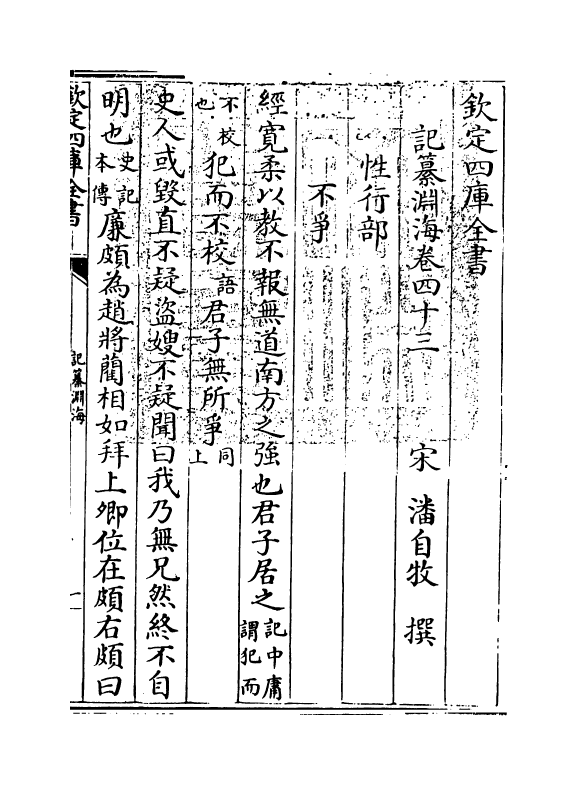 欽定四庫全書
記纂淵海卷四十三
宋 潘自牧 撰
性行部
不爭
經寛柔以教不報無道南方之強也君子居之記中庸謂犯而
不校也犯而不校語君子無所爭同上
史人或毀直不疑盜嫂不疑聞曰我乃無兄然終不自
明也史記本傳廉頗為趙將藺相如拜上卿位在頗右頗曰
欽定四庫全書
記纂淵海
一